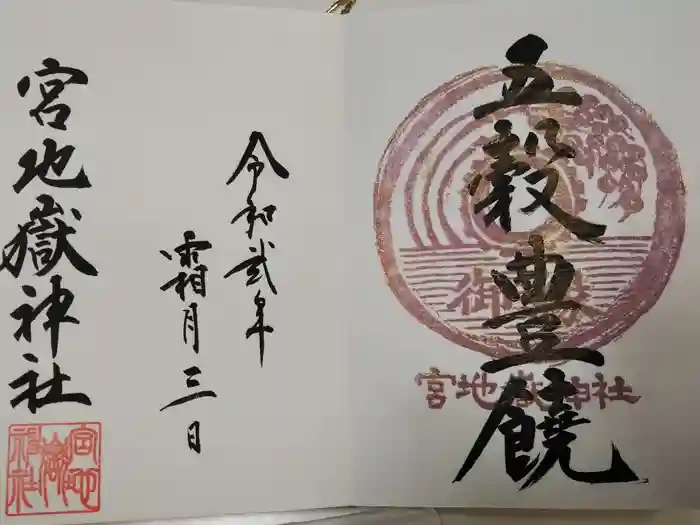 五穀豊饒
御祭
宮地嶽神社
令和弐年
霜月三日
宮地嶽神社
宮地嶽神社